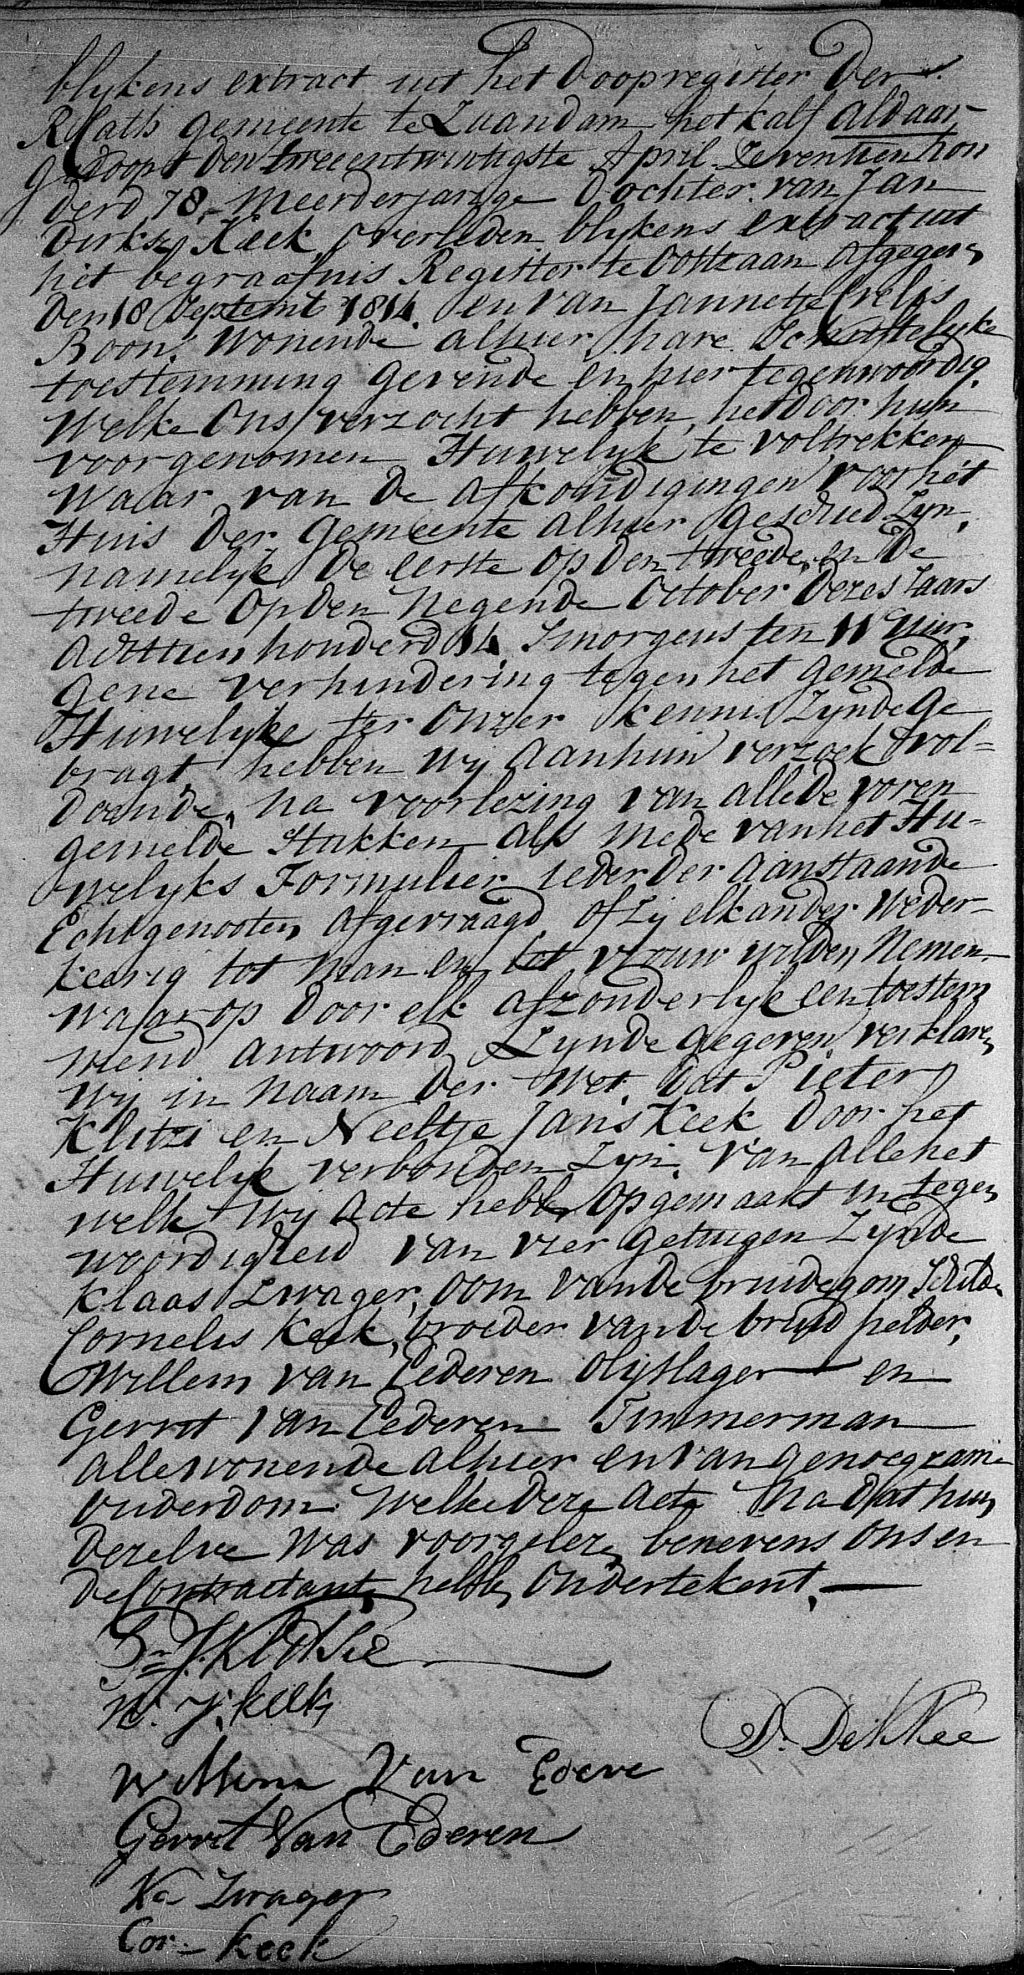 blijkens extract uit het Doopregister Der
RCath gemeente te Zaandam het kalf aldaar
gedoopt den tweeentwintigste April Zeventienhon
derd 78, Meerderjarige Dochter van Jan
Dirksz Keek, overleden blijkens extract uit
het begraafnis Register te Oostzaan afgegevn
Den 18 Septembr 1814. en van Jannetje Crelis
Boon. Wonende alhier, hare Schriftelijke
toestemming gevende en hier tegenwoordig.
Welke Ons verzocht hebben, het door hun
voorgenomen Huwelijk te voltrekken
Waar van de afkondigingen voor het
Huis der Gemeente alhier geschied Zijn,
namelijk De eerste op den tweede, en De
tweede Op den Negende October Dezes Jaars
Achttien honderd 14 Smorgens ten 11 Uur,
gene verhindering tegen het gemelde
Huwelijke ter Onzer kennis Zijnde ge
bragt, hebben Wij aan hun verzoek vol=
doende, na voorlezing van alle De voren
gemelde Stukken als Mede van het Hu=
welijks Formulier ieder der aanstaande
Echtgenooten afgevraagd, of Zij elkander Weder=
keerig tot Man en tot vrouw wilden Nemen.
Waarop Door elk afzonderlijk een toestem
mend antwoord Zijnde gegeven, verklaren
Wij in Naam Der Wet, Dat Pieter
Klitzi en Neeltje Jans Keek Door het
Huwelijk verbonden Zijn. Van alle het
welk Wij Acte hebbn opgemaakt in tegen
woordigheid van vier getuigen Zijnde
Klaas Zwager, Oom van de bruidegom,
Cornelis Keek, broeder van de bruid pelder,
Willem van Eederen Olijslager en
Gerrit van Eederen Timmerman
alle wonende alhier en van genoegzame
Ouderdom. Welke Deze Acte Na Dat hun
Dezelve Was voorgelezn benevens Ons en
De Contractantn hebbn Ondertekent.
N. J. Keek
D. Dekker
Willem Van Edere
Gerrit Van Ederen
Ks Zwager
Cor= Keek